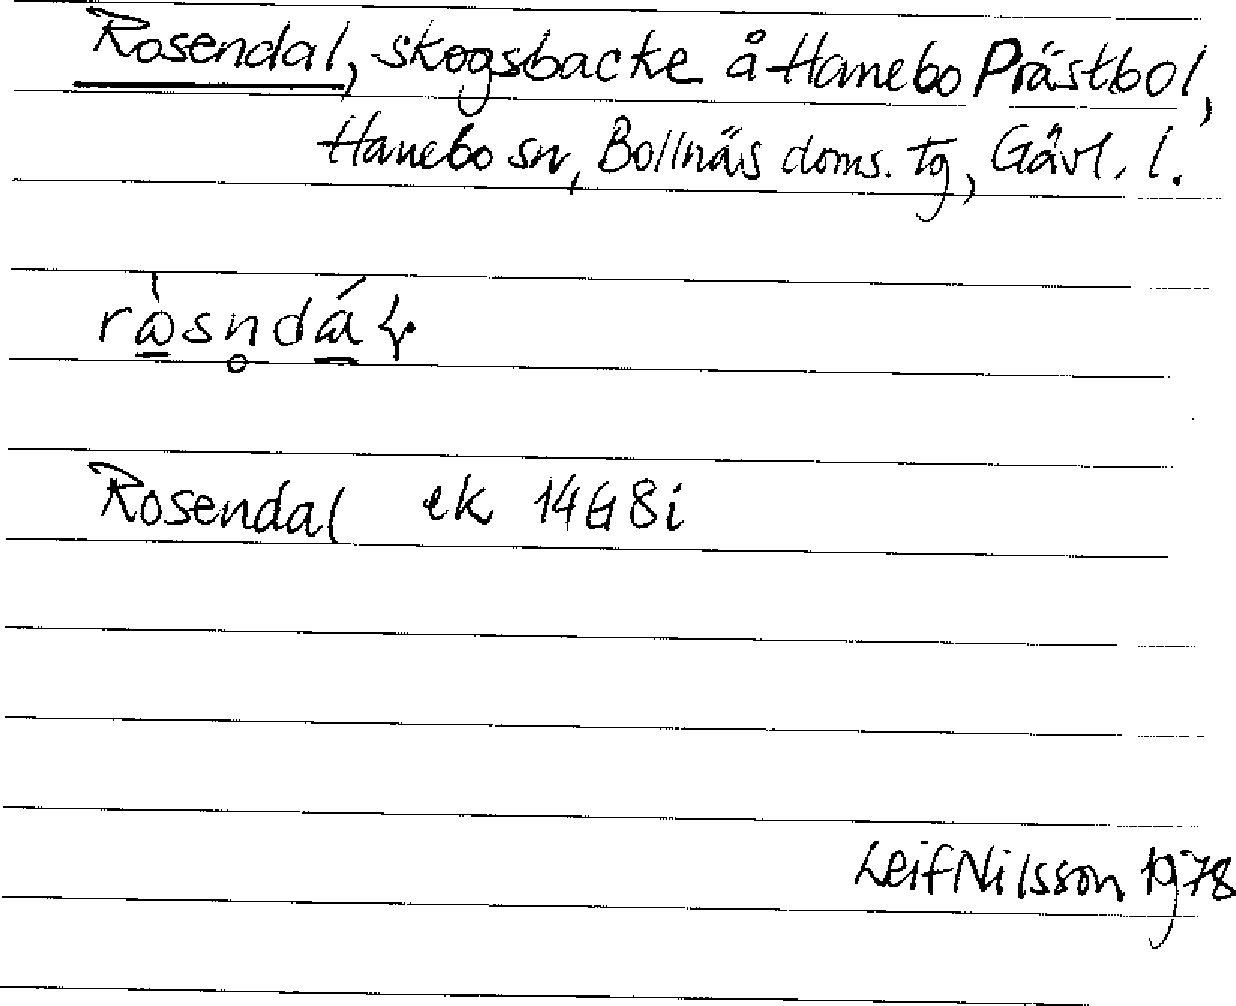 Rosendal, skogsbacke å Hanebo Prästbol,
Hanebo sn, Bollnäs doms. tg, Gävl. l.
Rosendal ek 14G8i
Leif Nilsson 1978